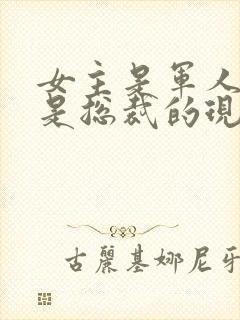 女主是軍人
是总裁的現
古麗基娜尼牙